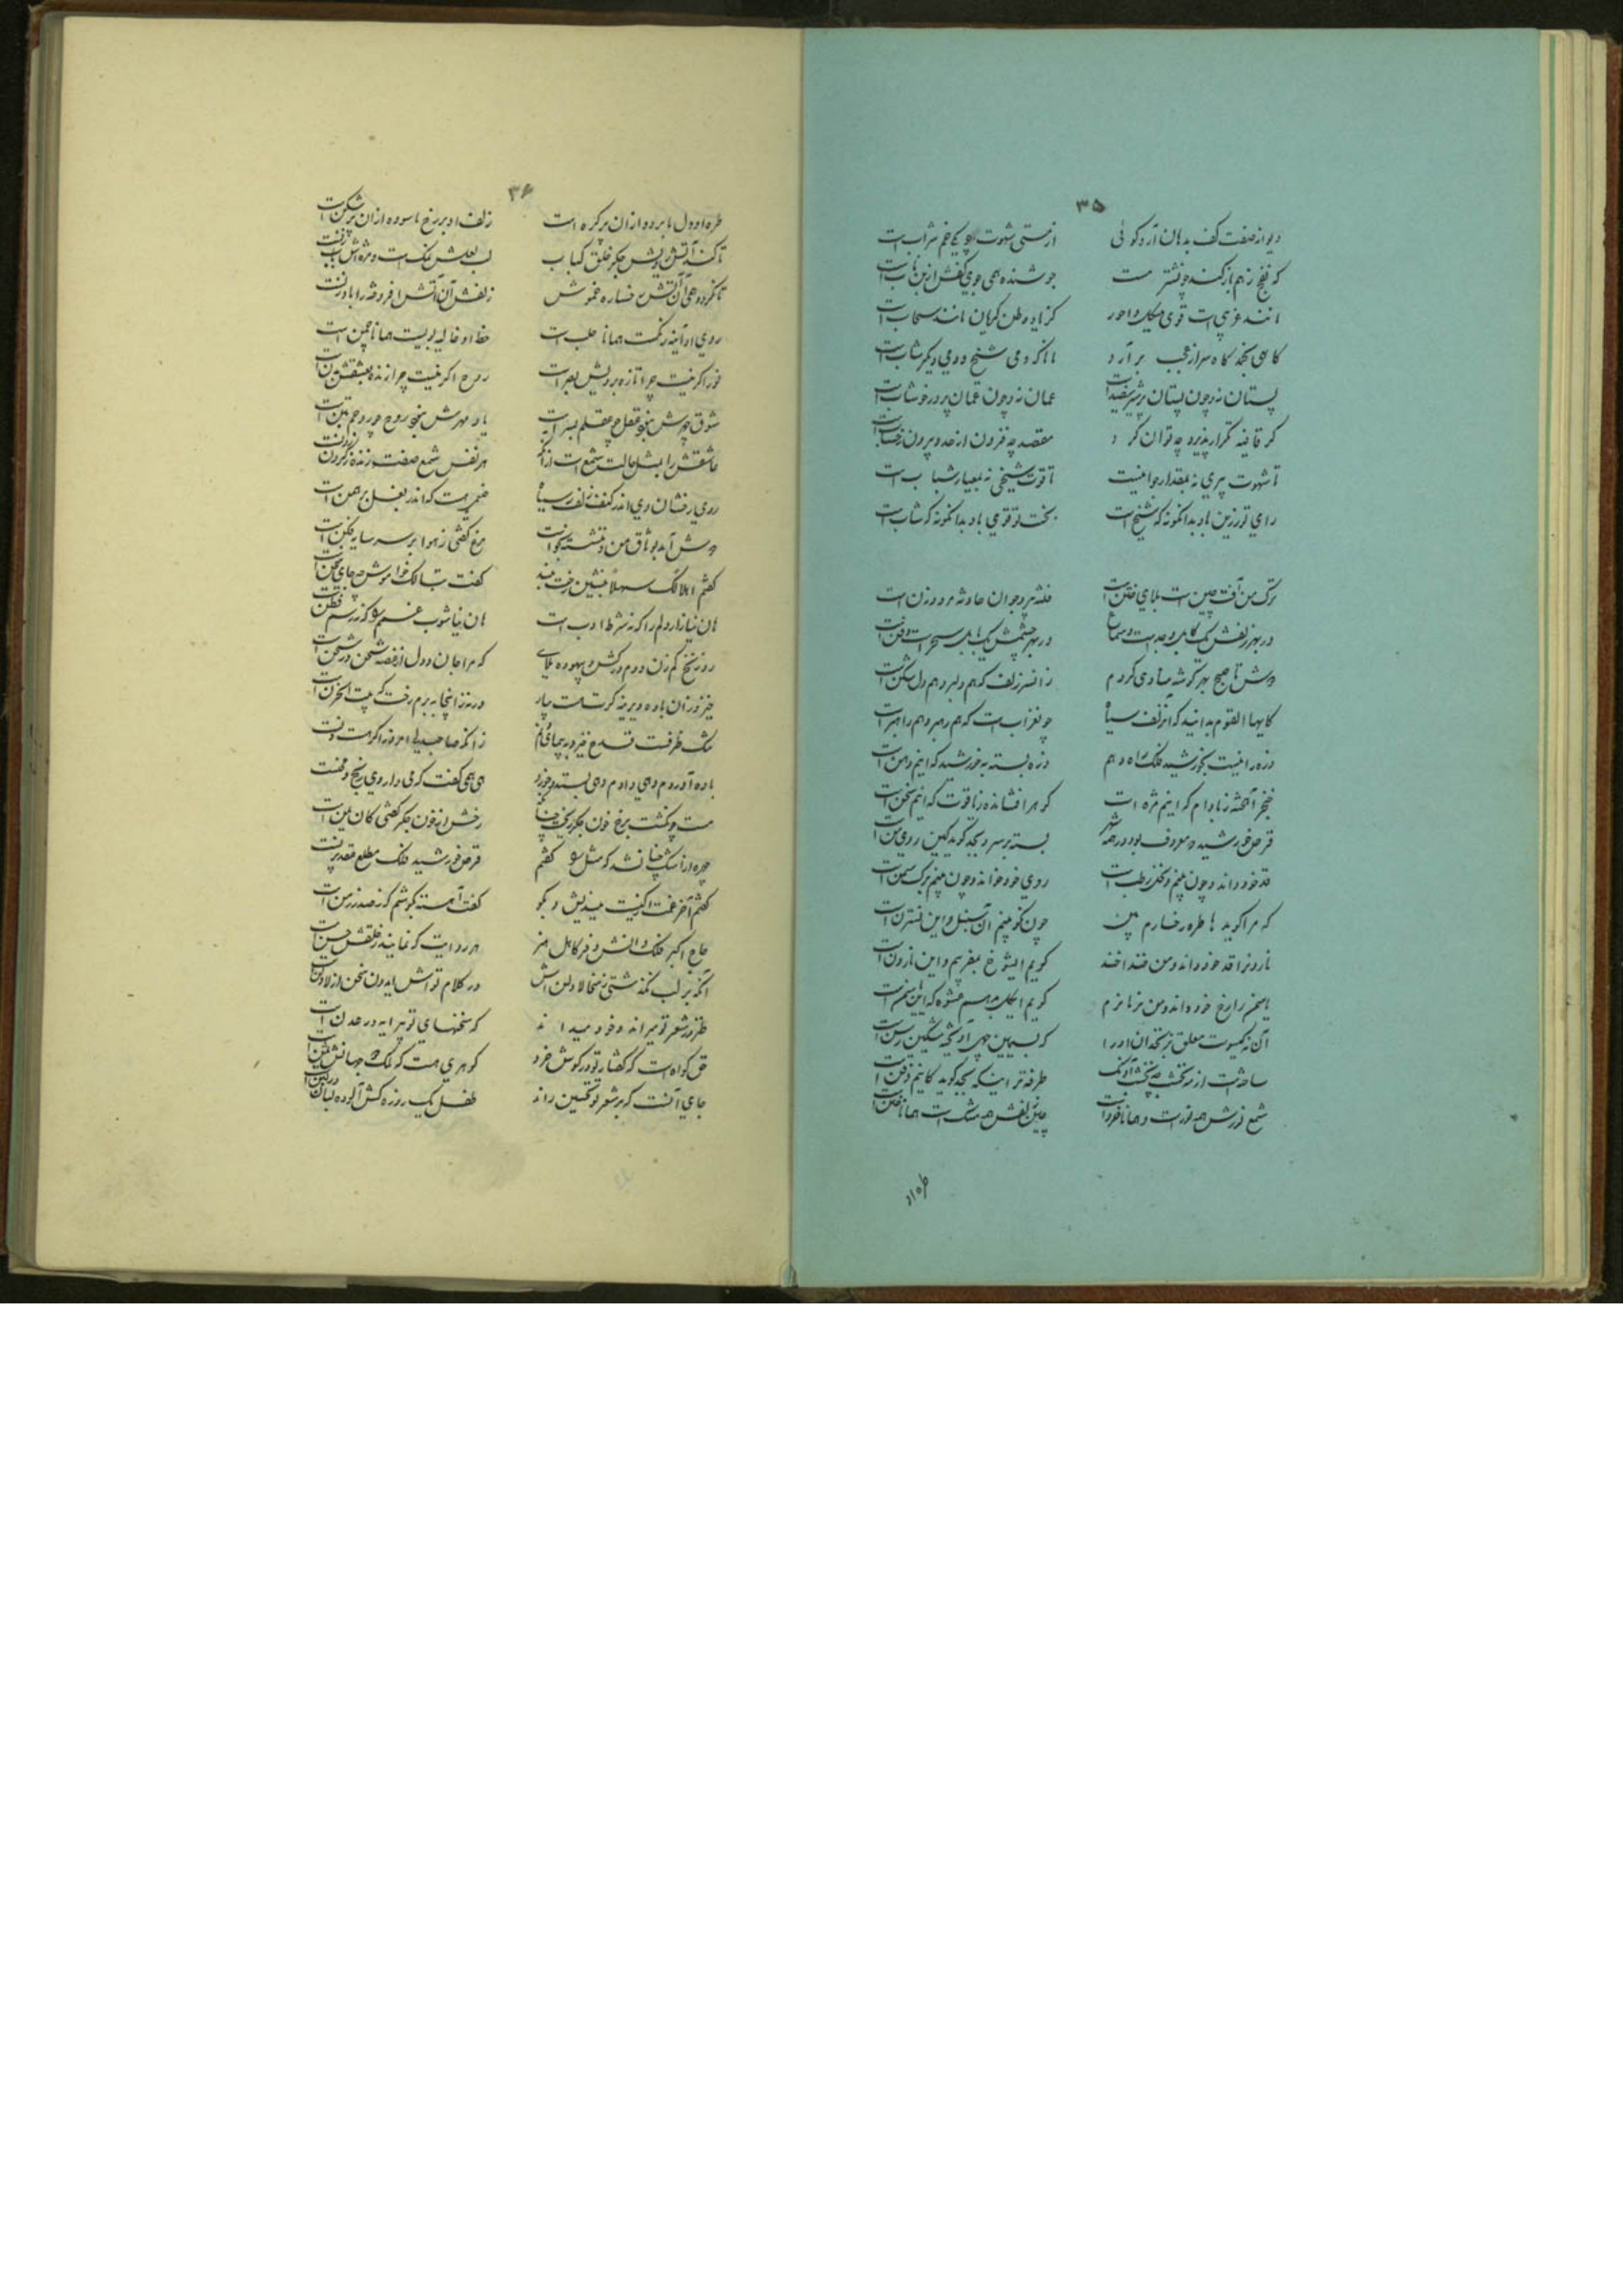 ۳۵
دیوانه صفت کف بدهان آرد گوئی از مستی شهوت او یکی خم شراب است
که فخ زهم باز کند چو شتر مست جوشنده همی جوی کفش از بن ناب است
مانند غریبی است قوی هیکل و احور کز یاد وطن گریان مانند سحاب است
گاهی بخمد گاه سر از عجب برآرد مانا که دمی شیخ و دمی دیگر شاب است
پستان نه و چون پستان پر شیر سفید است عمان نه و چون عمان پر در خوشاب است
گر قافیه تکرار پذیرد چه توان کرد مقصد چه فزون از حد و بیرون ز حساب است
تا شهوت پیری نه بمقدار جوانیست تا قوت شیخی نه بمعیار شباب است
رای تو رزین باد بدانگونه که شیخ است بخت تو قوی باد بدانگونه که شاب است
ترک من آفت چین است و بلای ختن است فتنه پیر و جوان حادثه مرد و زن است
در بهر زلفش یک کابل وجد است و سماع در بهر چشمش یک بابل سحر است و فتن است
دوش تا صبح بهر گوشه منادی کردم زانسر زلف که هم دلبر و هم دل شکن است
کایها القوم بدانید که انزلف سیاه چو غراب است که هم رهبر و هم راهزن است
ذره را نیست بخورشید فلک راه و هم ذره بسته به خورشید که اینم دهن است
خنجر آهخته ز بادام که اینم مژه است گوهر افشانده ز یاقوت که اینم سخن است
قرص خورشید چو معروف بود در همه شهر بسته بر سرو بجد گوید کاین روی من است
قد خود داند و چون بینم نخل رطب است روی خود خواند و چون بینم برگ سمن است
که مرا گوید ها طره و رخسارم بین چون نکو بینم آن سنبل و این نسترن است
نارون را قد خود داند و من خندا خند گویم ایشوخ بمفریبم و این نارون است
یاسمن را رخ خود داند و من نرمانرم گویم
آن نه گیسوست معلق ز زنخدان او را که بسیمین چهی آویخته مشکین رسن است
ساخته است از نخشب چه نخشب آونگ طرفه‌تر اینکه بجد گوید کاینم ذقن است
شمع نورش همه نور است و همانا خرد است چین زلفش همه مشک است همانا ختن است
طره او
۳۶
طره او دل ما برده از آن پر گره است زلف او بر رخ ما سوده از آن پر شکن است
تا کند آتش رویش جگر خلق کباب لب لعلش نمک است و مژه‌اش بابزن است
تا نگردد همی آن آتش رخساره خموش زلفش آن آتش افروخته را بادزن است
روی او آینه رنگست همانا حلب است خط او غالیه بوییست همانا چمن است
نور اگر نیست چرا تازه برویش بصر است روح اگر نیست چرا زنده بعشقش بدن است
شوق چهرش نبود عقل و چو عقلم بسر است یاد مهرش نبود روح و چو روحم بتن است
عاشقش را بمثل حالت شمع است از آنک هر نفس شمع صفت زنده ز گردن زدن است
روی رخشان وی اندر کنف زلف سیاه صنمی هست که اندر بغل برهمن است
دوش آمد بوثاق من و ننشسته بخواست مرغ گفتی ز هوا بر سر سایه فکن است
گفتم اهلا لک سهلا بنشین رخت بنه گفت تبا لک خاموش چه جای سخن است
هان میازار دلم را که نه شرط ادب است هان میاشوب غمم را که نه رسم فطن است
رو زنخ کم زن و دم درکش و بیهوده ملای که مرا جان و دل از غصه شجن در شجن است
خیز و زان باده دیرینه گرت هست بیار ورنه زاینجا ببرم رخت که بیت الحزن است
تنگ ظرفست قدح خیز و بپیمای بخم زانکه صاحبدلی امروز اگر هست دن است
باده آوردم و هی دادم و هی بستد و خورد هی همی گفت که می داروی رنج و محن است
مست چو گشت برخ خون جگر ریخت چنانک رخش از خون جگر گفتی کان یمن است
چهره از اشک چنان شد که مثل را گفتم قرص خورشید فلک مطلع عقد پرن است
گفتم آخر غمت از کیست میندیش و بگو گفت آهسته بگوشم که ز صدر زمن است
حاج اکبر فلک دانش و فر کاهل هنر هر روایت که نمایند ز خلقش حسن است
آنکه بر لب نگذشتی ز سخا لا و لن‌اش در کلام تواش ایدون سخن از لا و لن است
طنز در شعر تو میراند و خود میداند که سخنهای تو پیرایه در عدن است
حق گواه است که گفتار تو در گوش خرد گوهری هست که ملک دو جهانش ثمن است
جای آنست که بر شعر تو تحسین راند طفل یک روزه کش آلوده لبان در لبن است